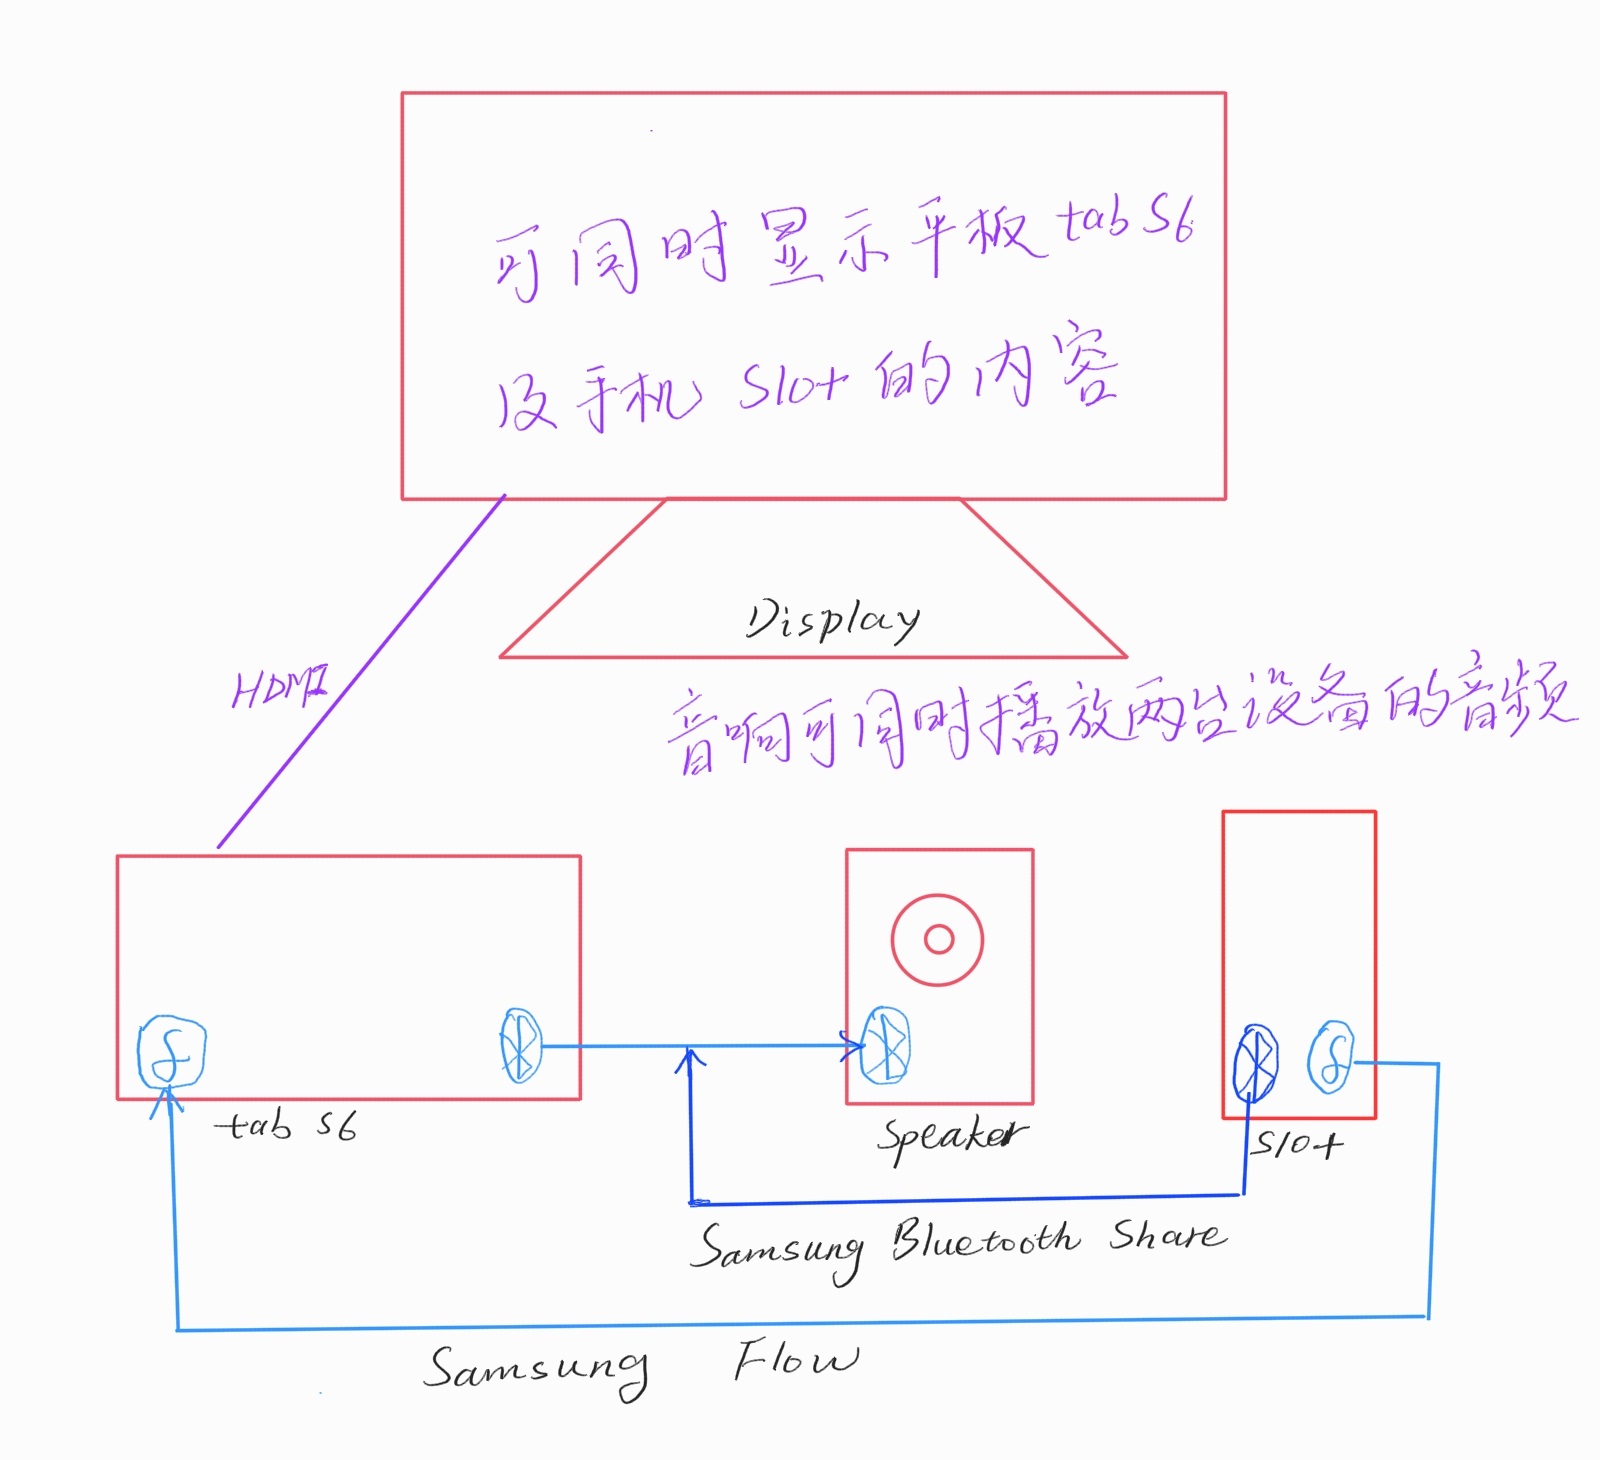 可同时显示平板tab S6
及手机 S10+ 的内容
Display
HDMI
音响可同时播放两台设备的音频
tab S6
Speaker
S10+
Samsung Bluetooth Share
Samsung Flow